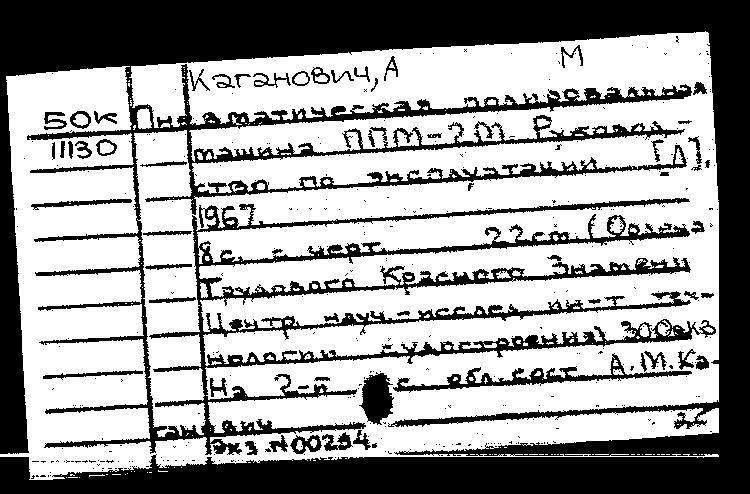 Каганович, А М
50к Пневматическая полировальная
11130 машина ППМ-2М. Руковод-
ство по эксплуатации. [Л].
1967.
8с. с черт. 22см. (Ордена
Трудового Красного Знамени
Центр. науч.-исслед. ин-т тех-
нологии судостроения) 300экз
На 2-й с. обл. сост. А.М.Ка-
ганович
Экз. №00294.